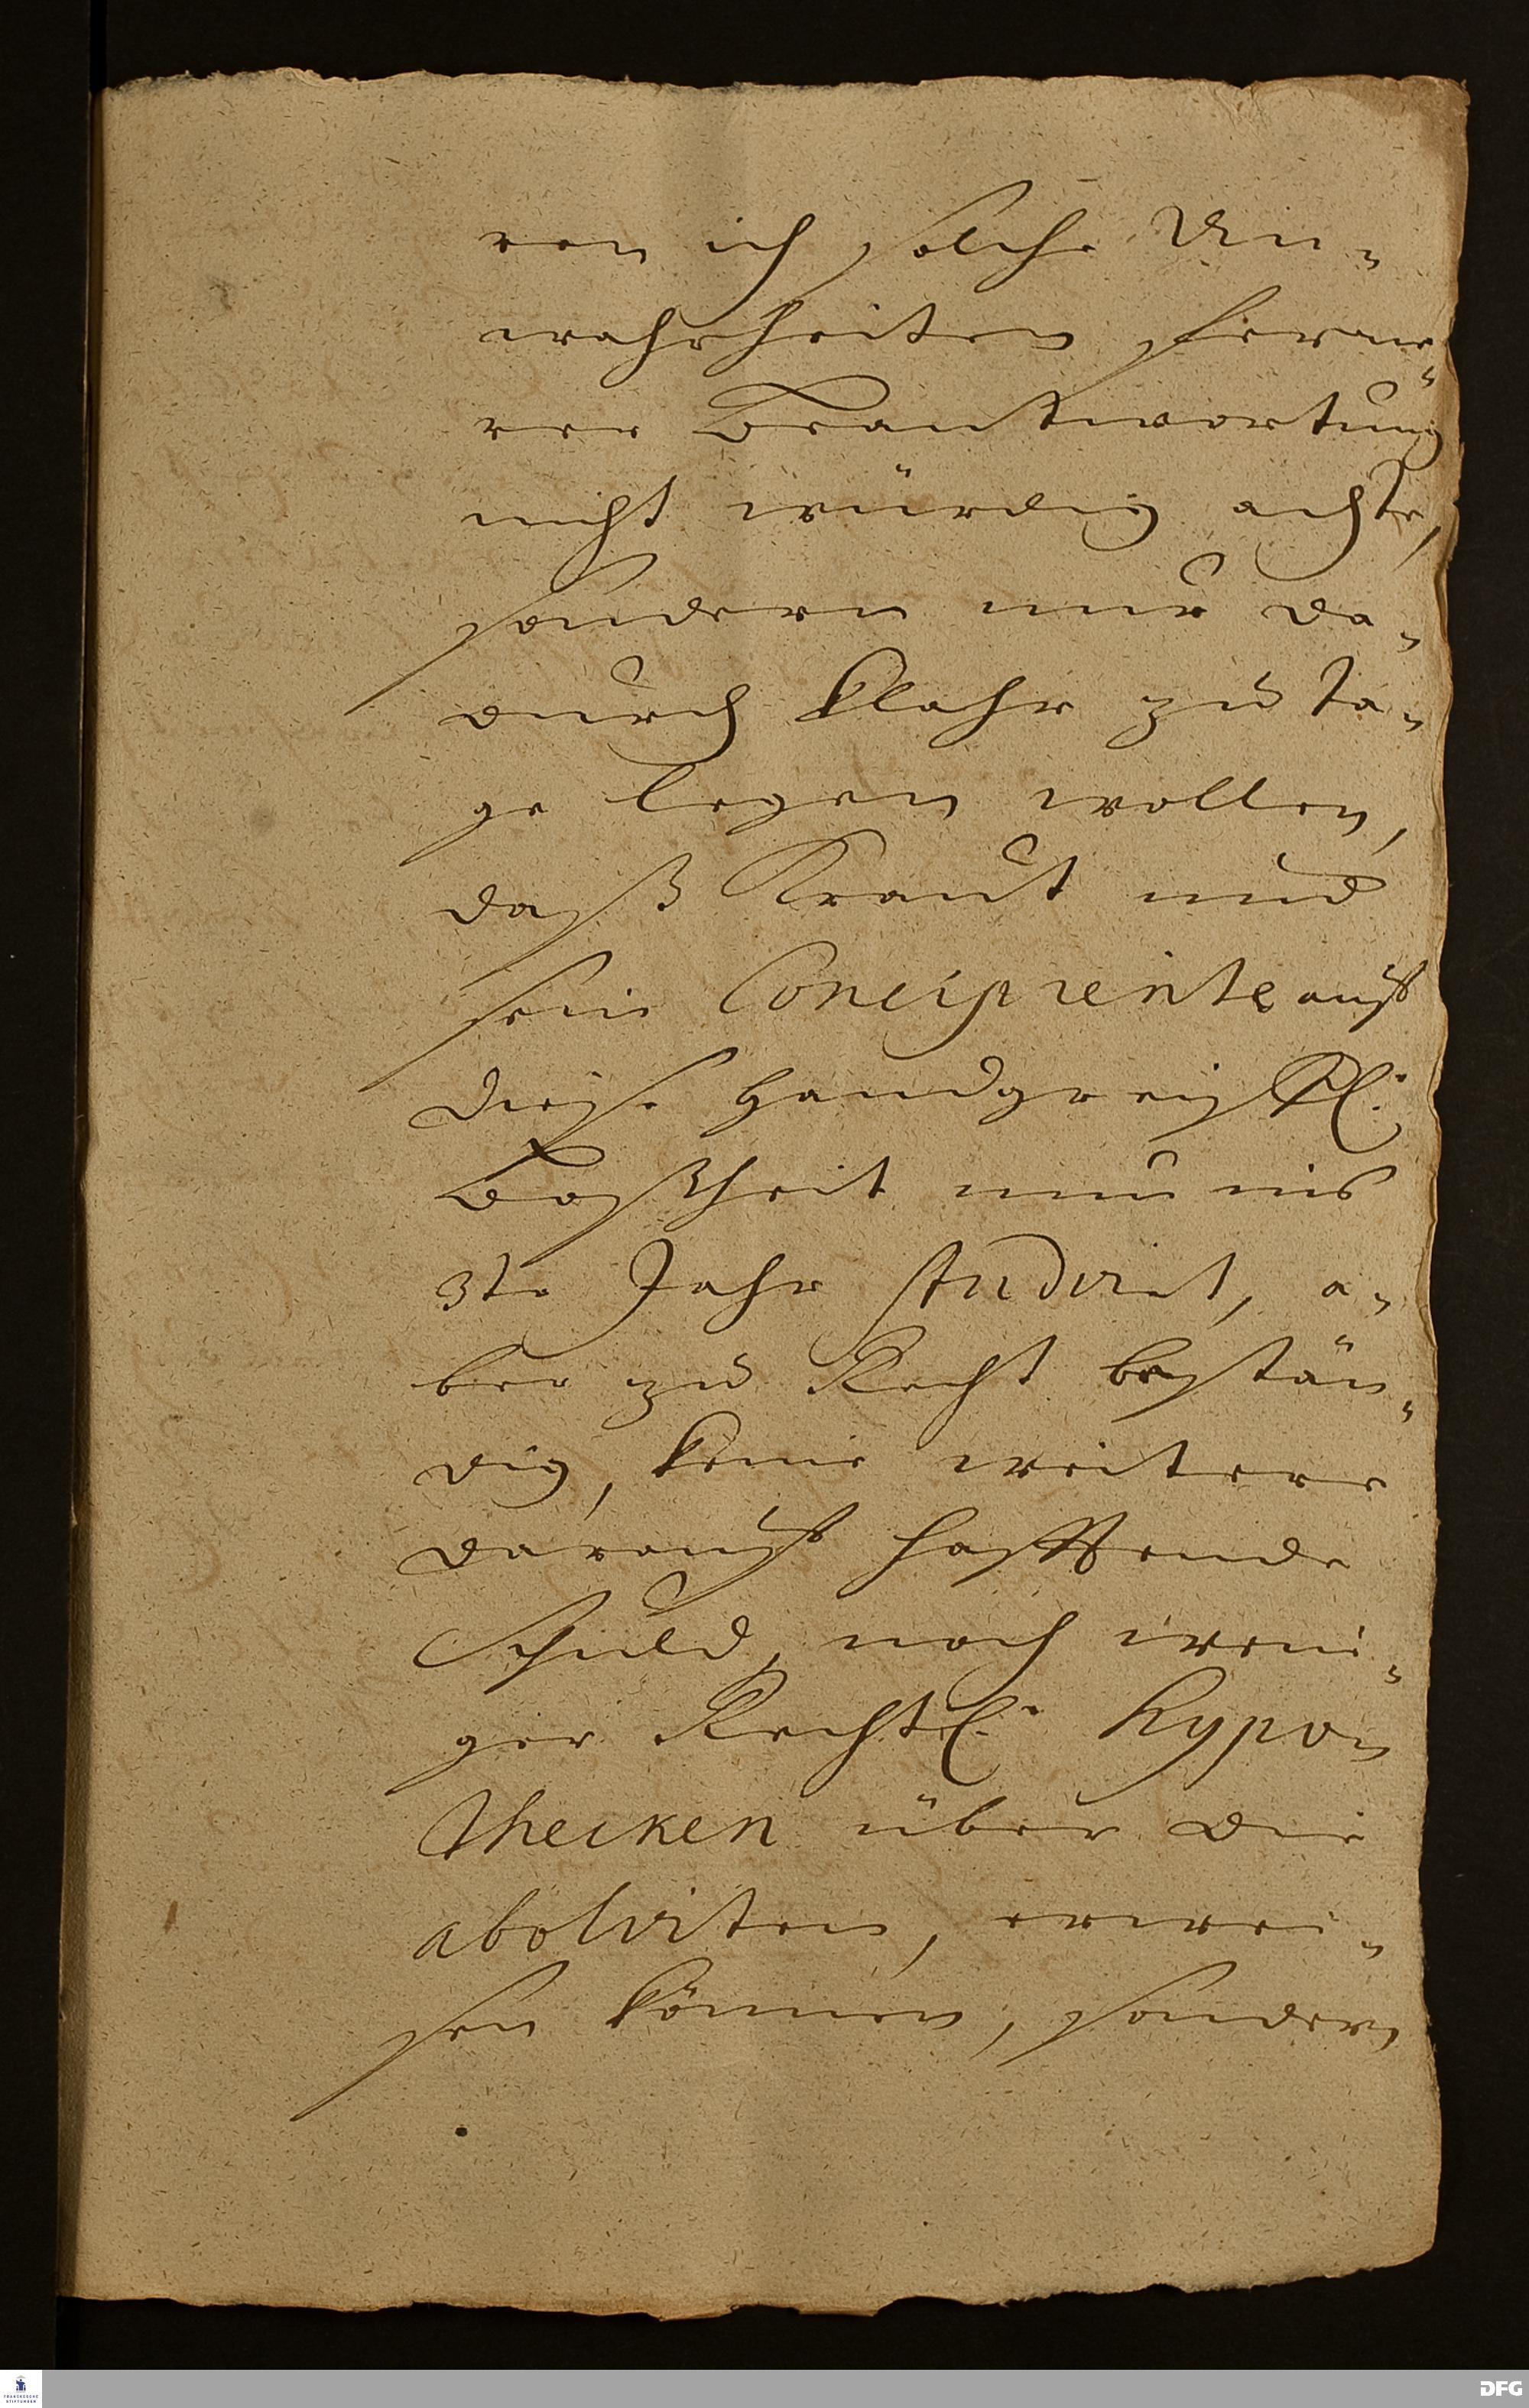 ren ich solche Un-
wahrheiten ferne-
rer Beantwortung
nicht würdig achte,
sondern nur da-
durch klahr zu ta-
ge legen wollen,
daß Kraut und
sein Concipiente auf
diese handgreifl.
Boßheit nun ins
3te Jahr studirt, a-
ber zu Recht bestän-
dig, keine weitere
darauf hafftende
Schuld, noch weni-
ger Rechtl. Hypo-
thecken über die
abolirten, erwei-
sen können, sondern
TRANSKESCHE
STIFTUNGEN
DFG